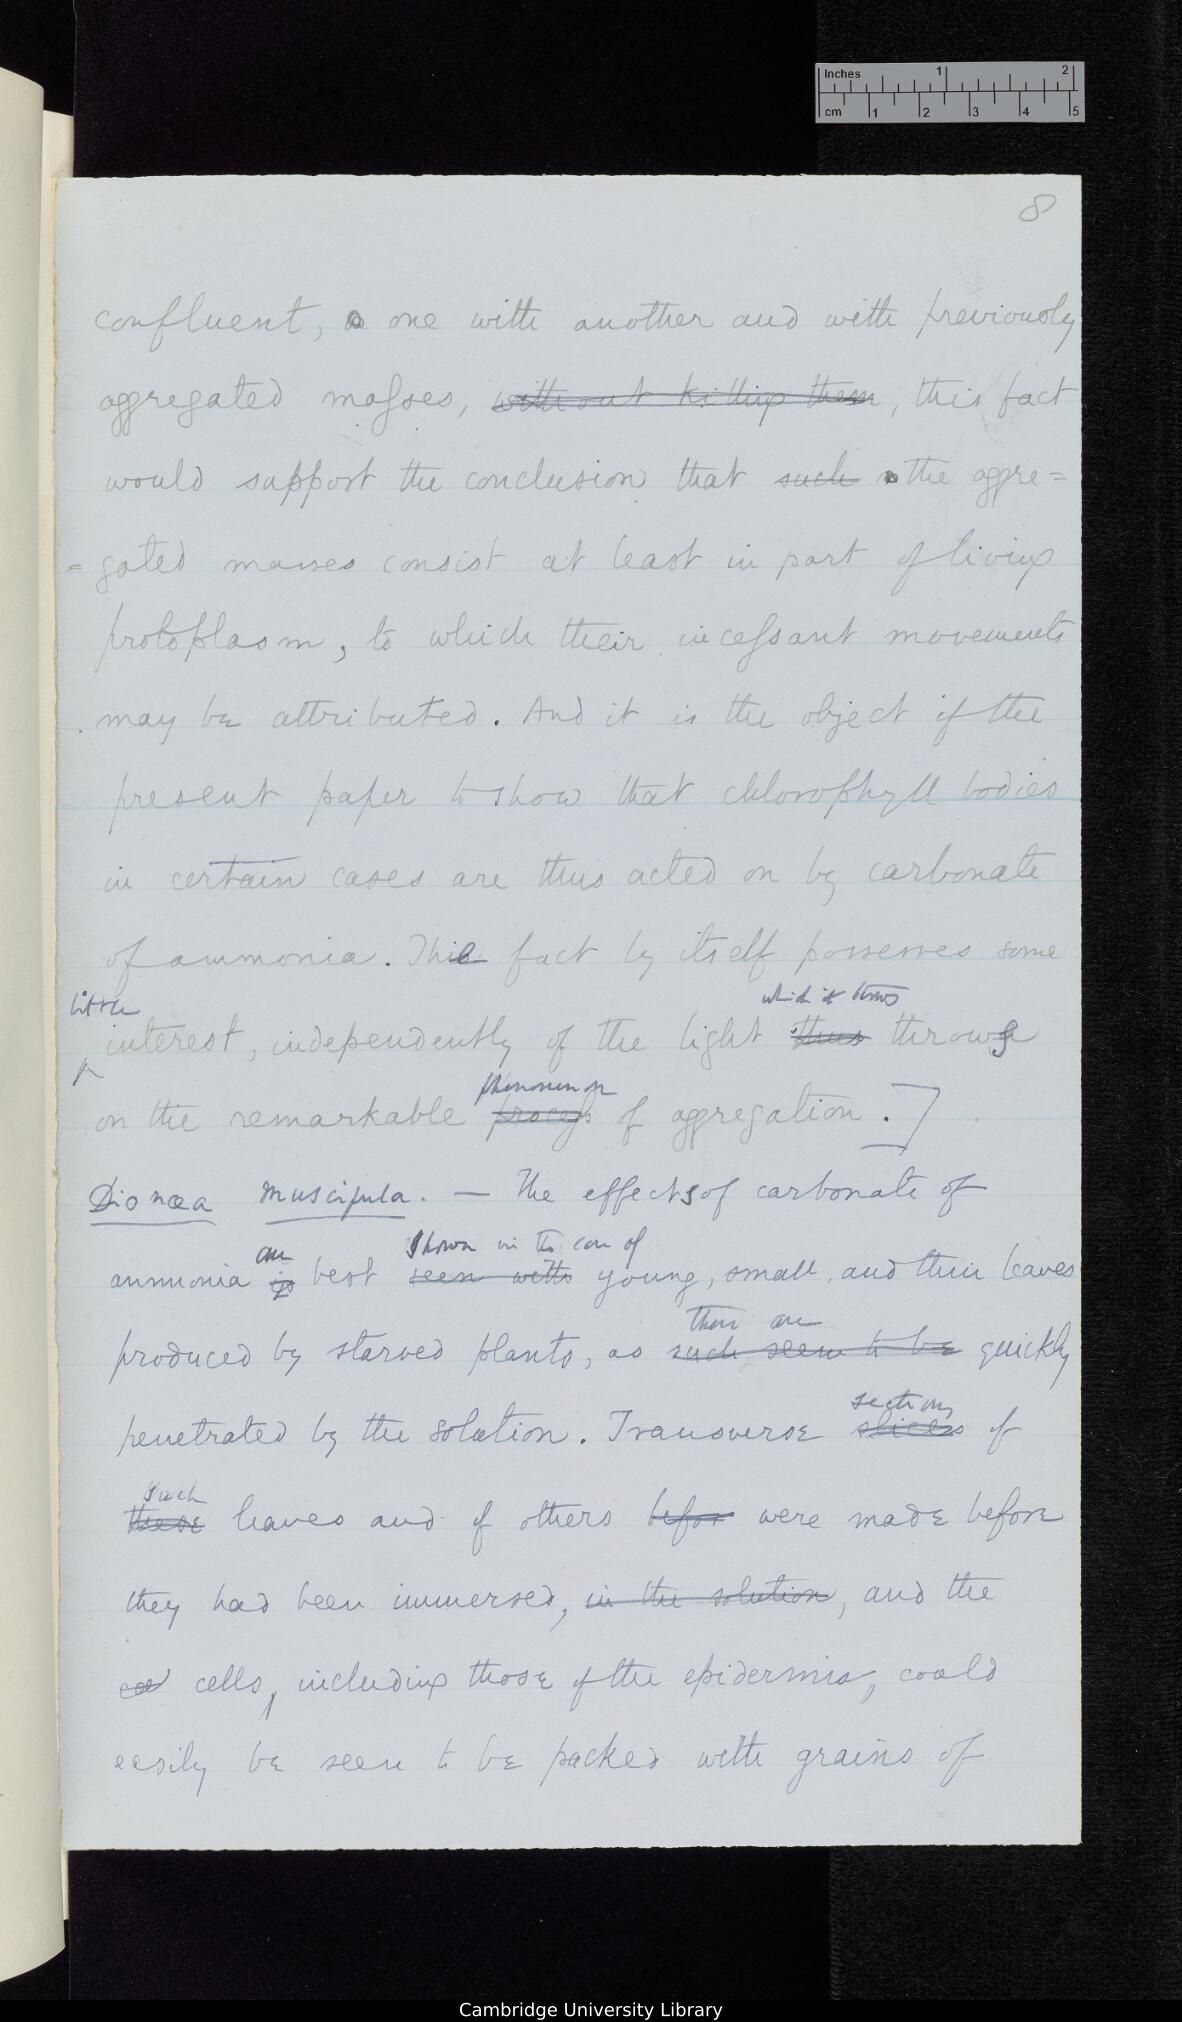 Inches 1 2
cm 1 2 3 4 5
8
confluent, one with another and with previously
aggregated masses, without killing them, this fact
would support the conclusion that such the aggre=
=gated masses consist at least in part of living
protoplasm, to which their incessant movements
may be attributed. And it is the object of the
present paper to show that chlorophyll bodies
in certain cases are thus acted on by carbonate
of ammonia. This fact by itself possesses some
little
which it throws
interest, independently of the light thus throws
phenomenon
on the remarkable process of aggregation.]
Dionæa muscipula. — The effects of carbonate of
are shown in the case of
ammonia is best seen with young, small, and thin leaves
these are
produced by starved plants, as such seem to be quickly
sections
penetrated by the solution. Transverse slices of
such
these leaves and of others befor were made before
they had been immersed, in the solution, and the
cells, including those of the epidermis, could
easily be seen to be packed with grains of
Cambridge University Library